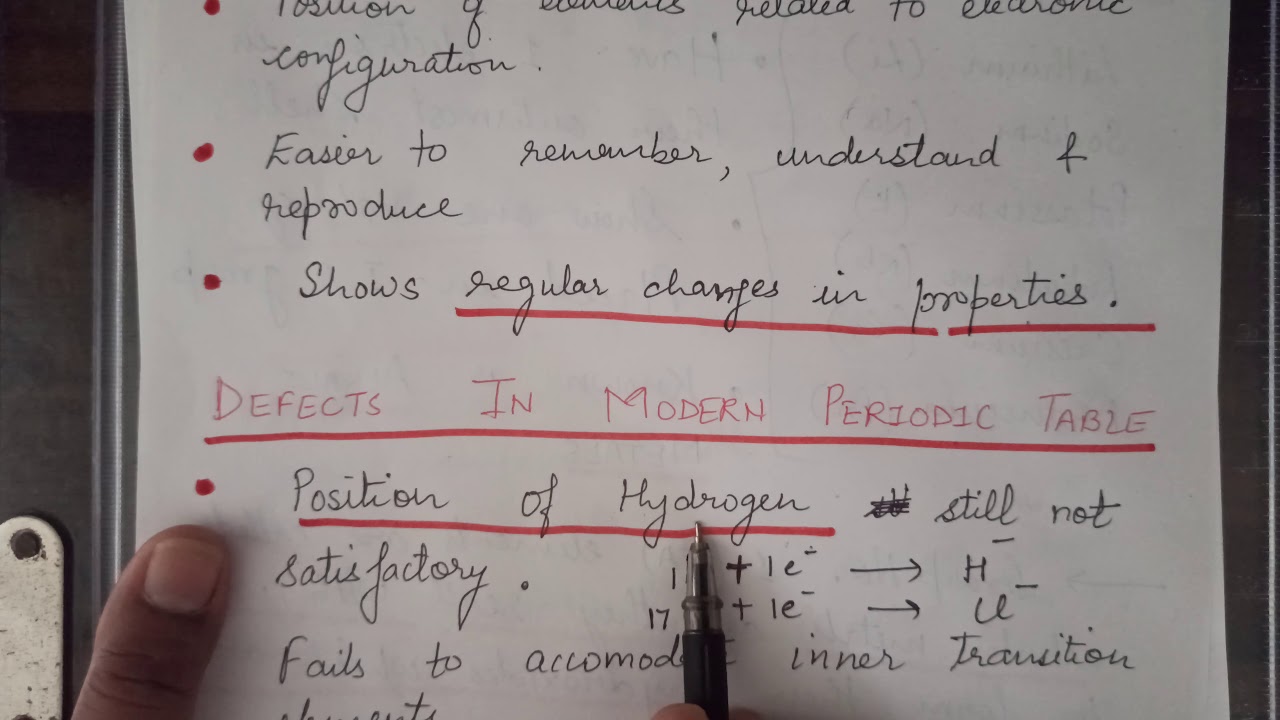 Position of elements related to electronic
configuration.
Easier to remember, understand &
reproduce
Shows regular changes in properties.
DEFECTS IN MODERN PERIODIC TABLE
Position of Hydrogen still not
satisfactory.
1 + 1e⁻ → H⁻
17 + 1e⁻ → Cl⁻
Fails to inner transition
elements